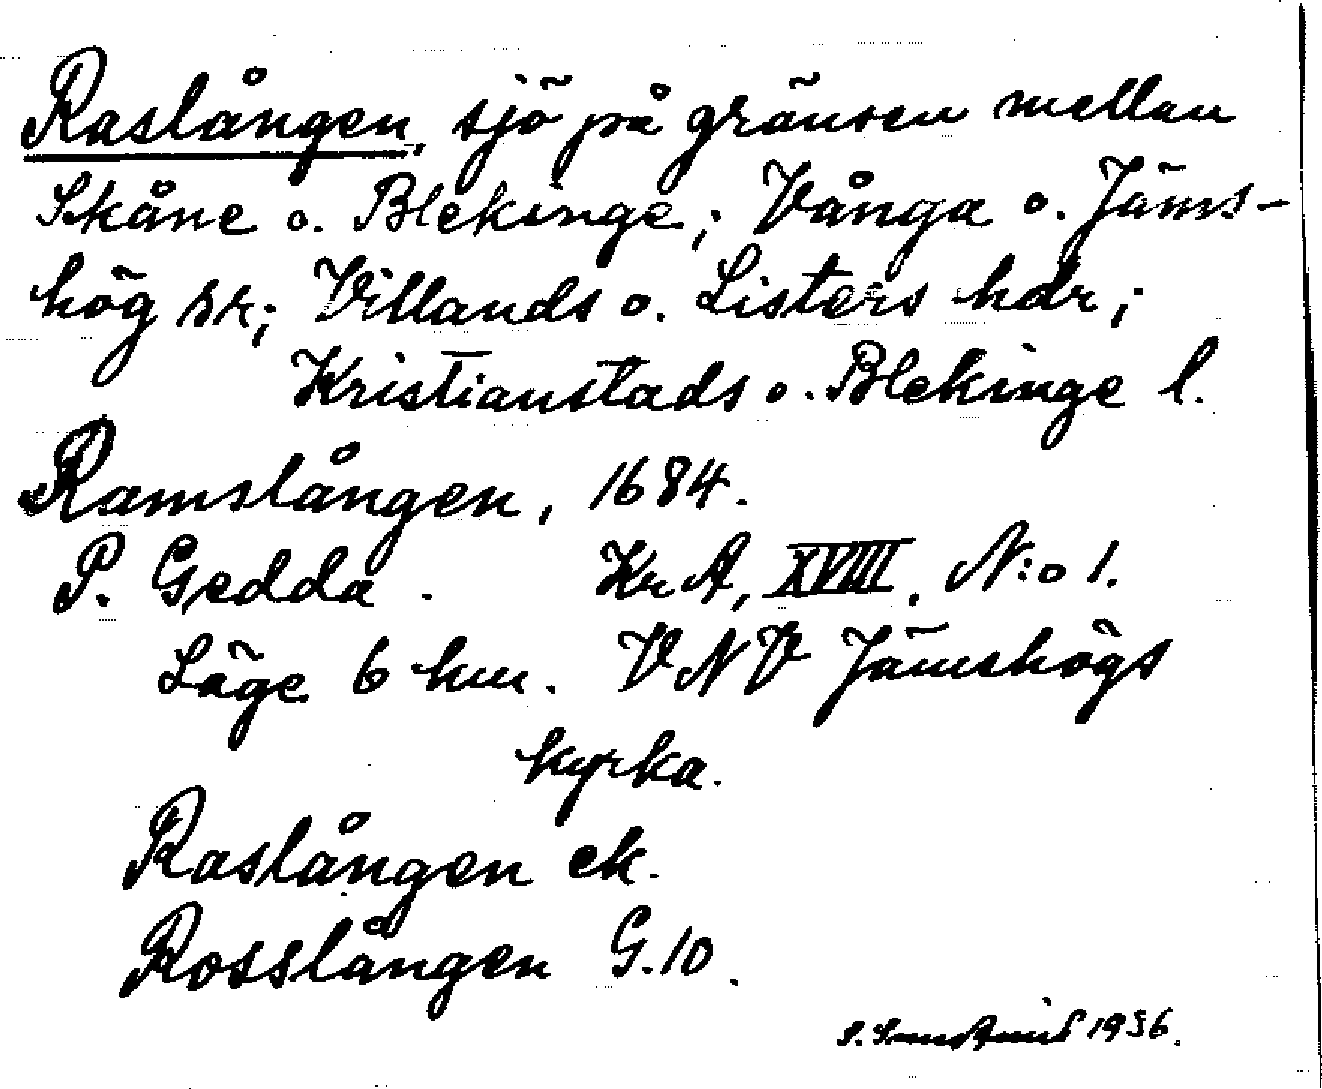 Raslången, sjö på gränsen mellan
Skåne o. Blekinge; Vånga o. Jäms-
hög sk; Villands o. Listers hdr;
Kristianstads o. Blekinge l.
Ramslången, 1684.
P. Gedda. Kr A, XVIII. N:o 1.
Läge 6 km. VNV Jämshögs
kyrka.
Raslången ek.
Rosslången G.10.
1936.